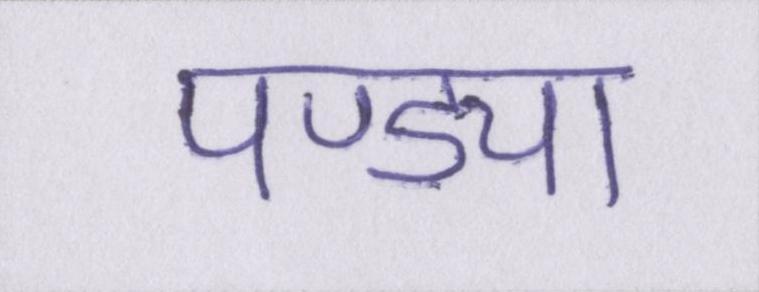 पण्ड्या